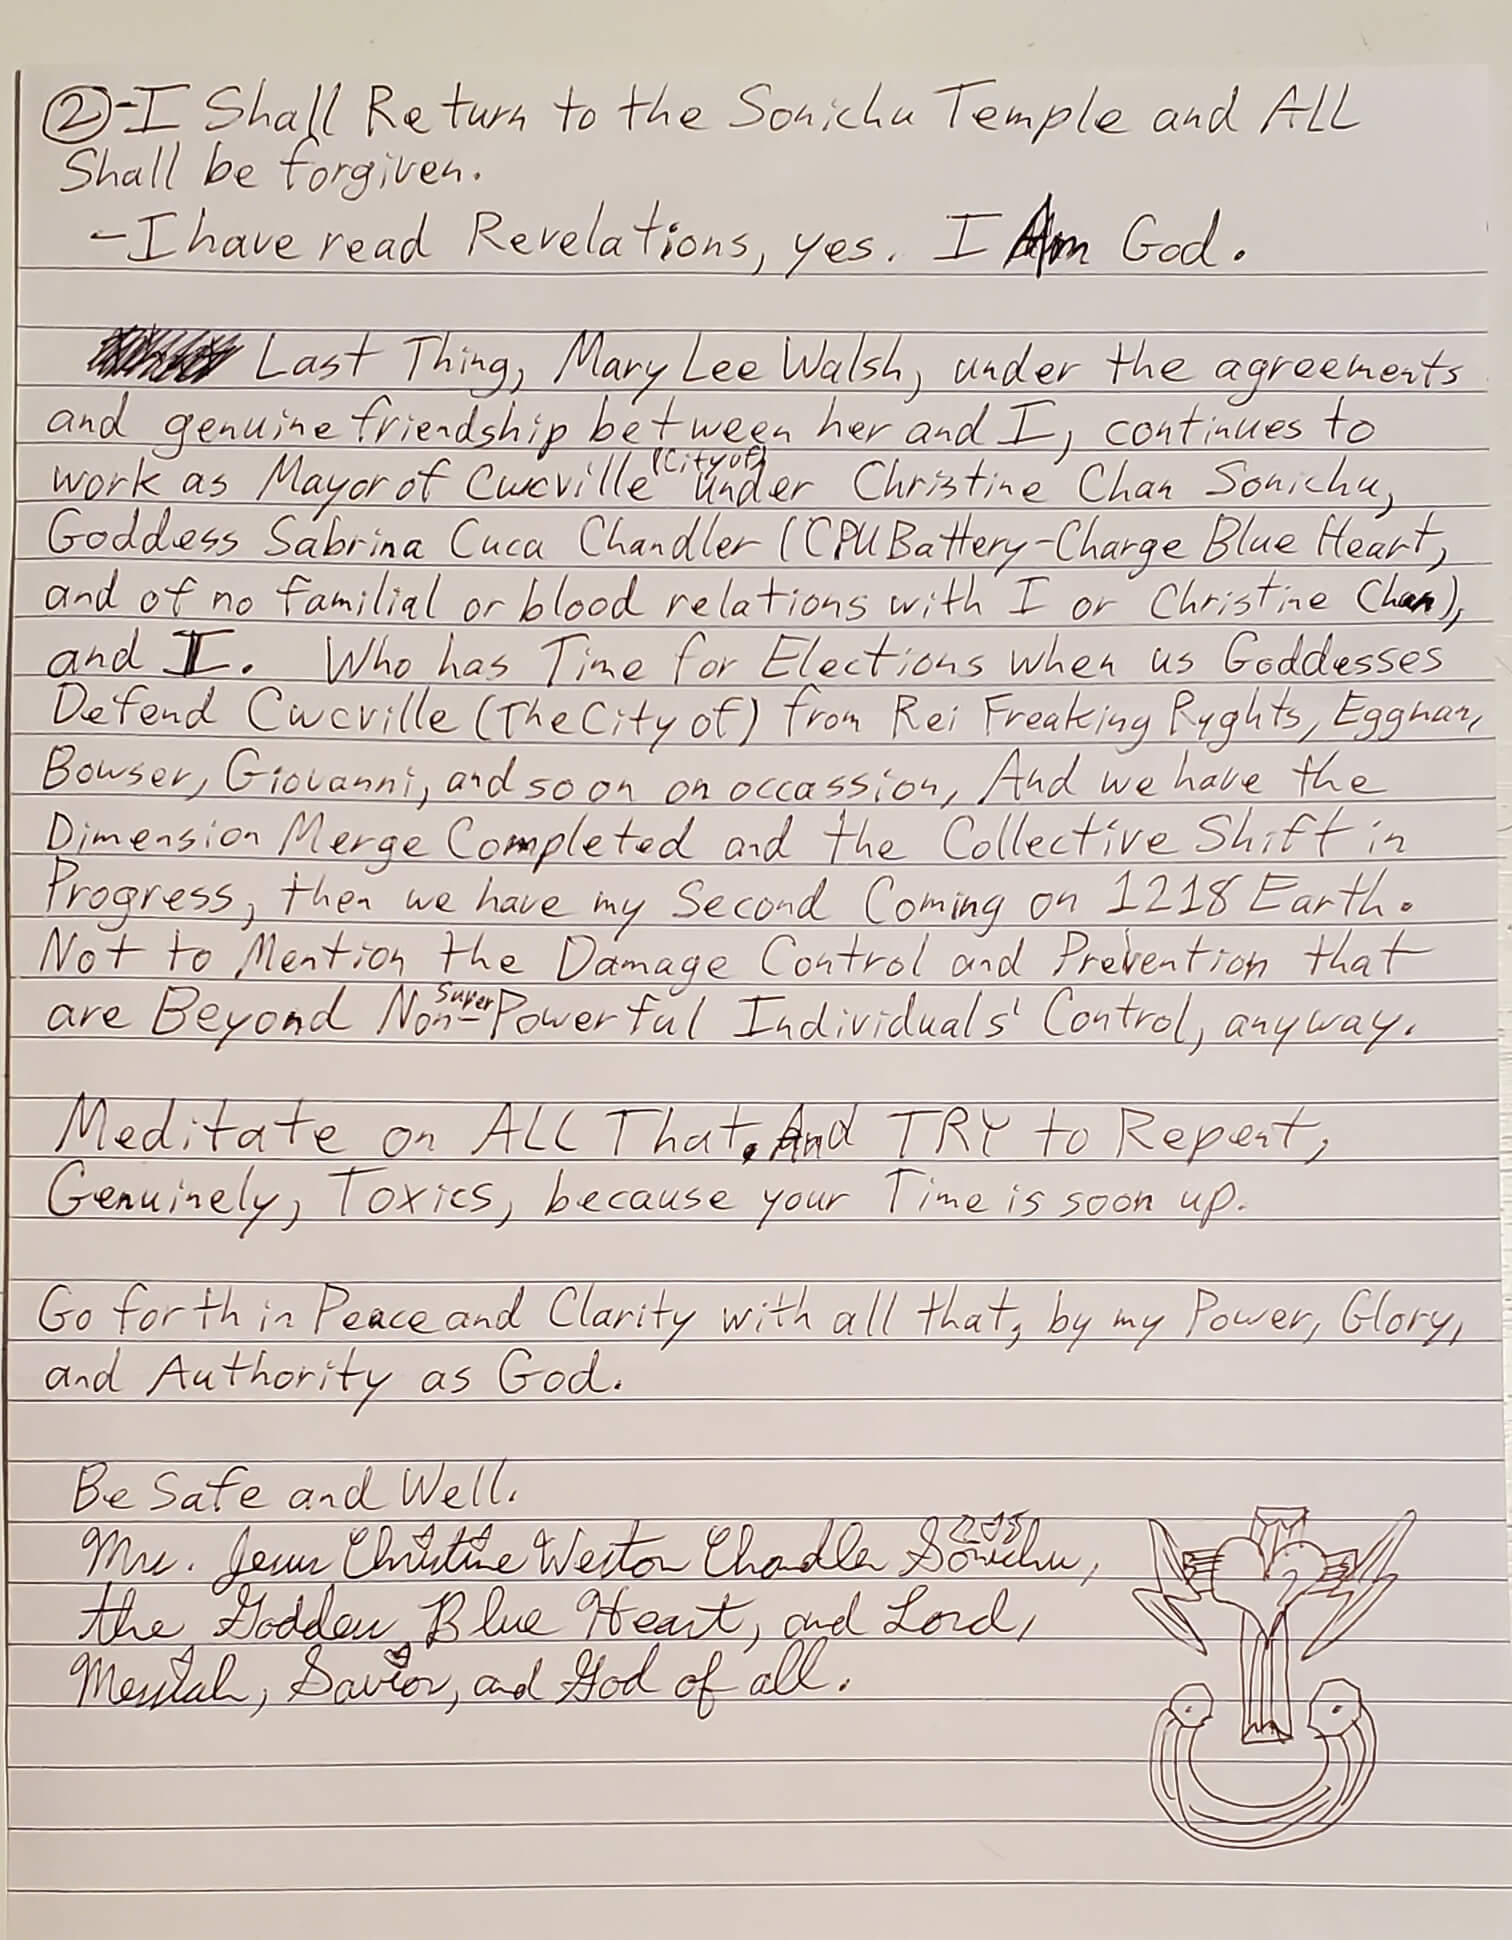 ②-I Shall Return to the Sonichu Temple and ALL
Shall be forgiven.
-I have read Revelations, yes. I Am God.
Last Thing, Mary Lee Walsh, under the agreements
and genuine friendship between her and I, continues to
work as Mayor of Cwcville (City of) under Christine Chan Sonichu,
Goddess Sabrina Cuca Chandler (CPU Battery-Charge Blue Heart,
and of no familial or blood relations with I or Christine Chan),
and I. Who has Time for Elections when us Goddesses
Defend Cwcville (The City of) from Rei Freaking Ryghts, Eggman,
Bowser, Giovanni, and so on on occassion, And we have the
Dimension Merge Completed and the Collective Shift in
Progress, then we have my Second Coming on 1218 Earth.
Not to Mention the Damage Control and Prevention that
are Beyond Non-Super Powerful Individuals' Control, anyway.
Meditate on ALL That. And TRY to Repent,
Genuinely, Toxics, because your Time is soon up.
Go forth in Peace and Clarity with all that, by my Power, Glory,
and Authority as God.
Be Safe and Well.
Jesus Christine Weston Chandler Sonichu,
the Goddess Blue Heart, and Lord,
Messiah, Savior, and God of all.